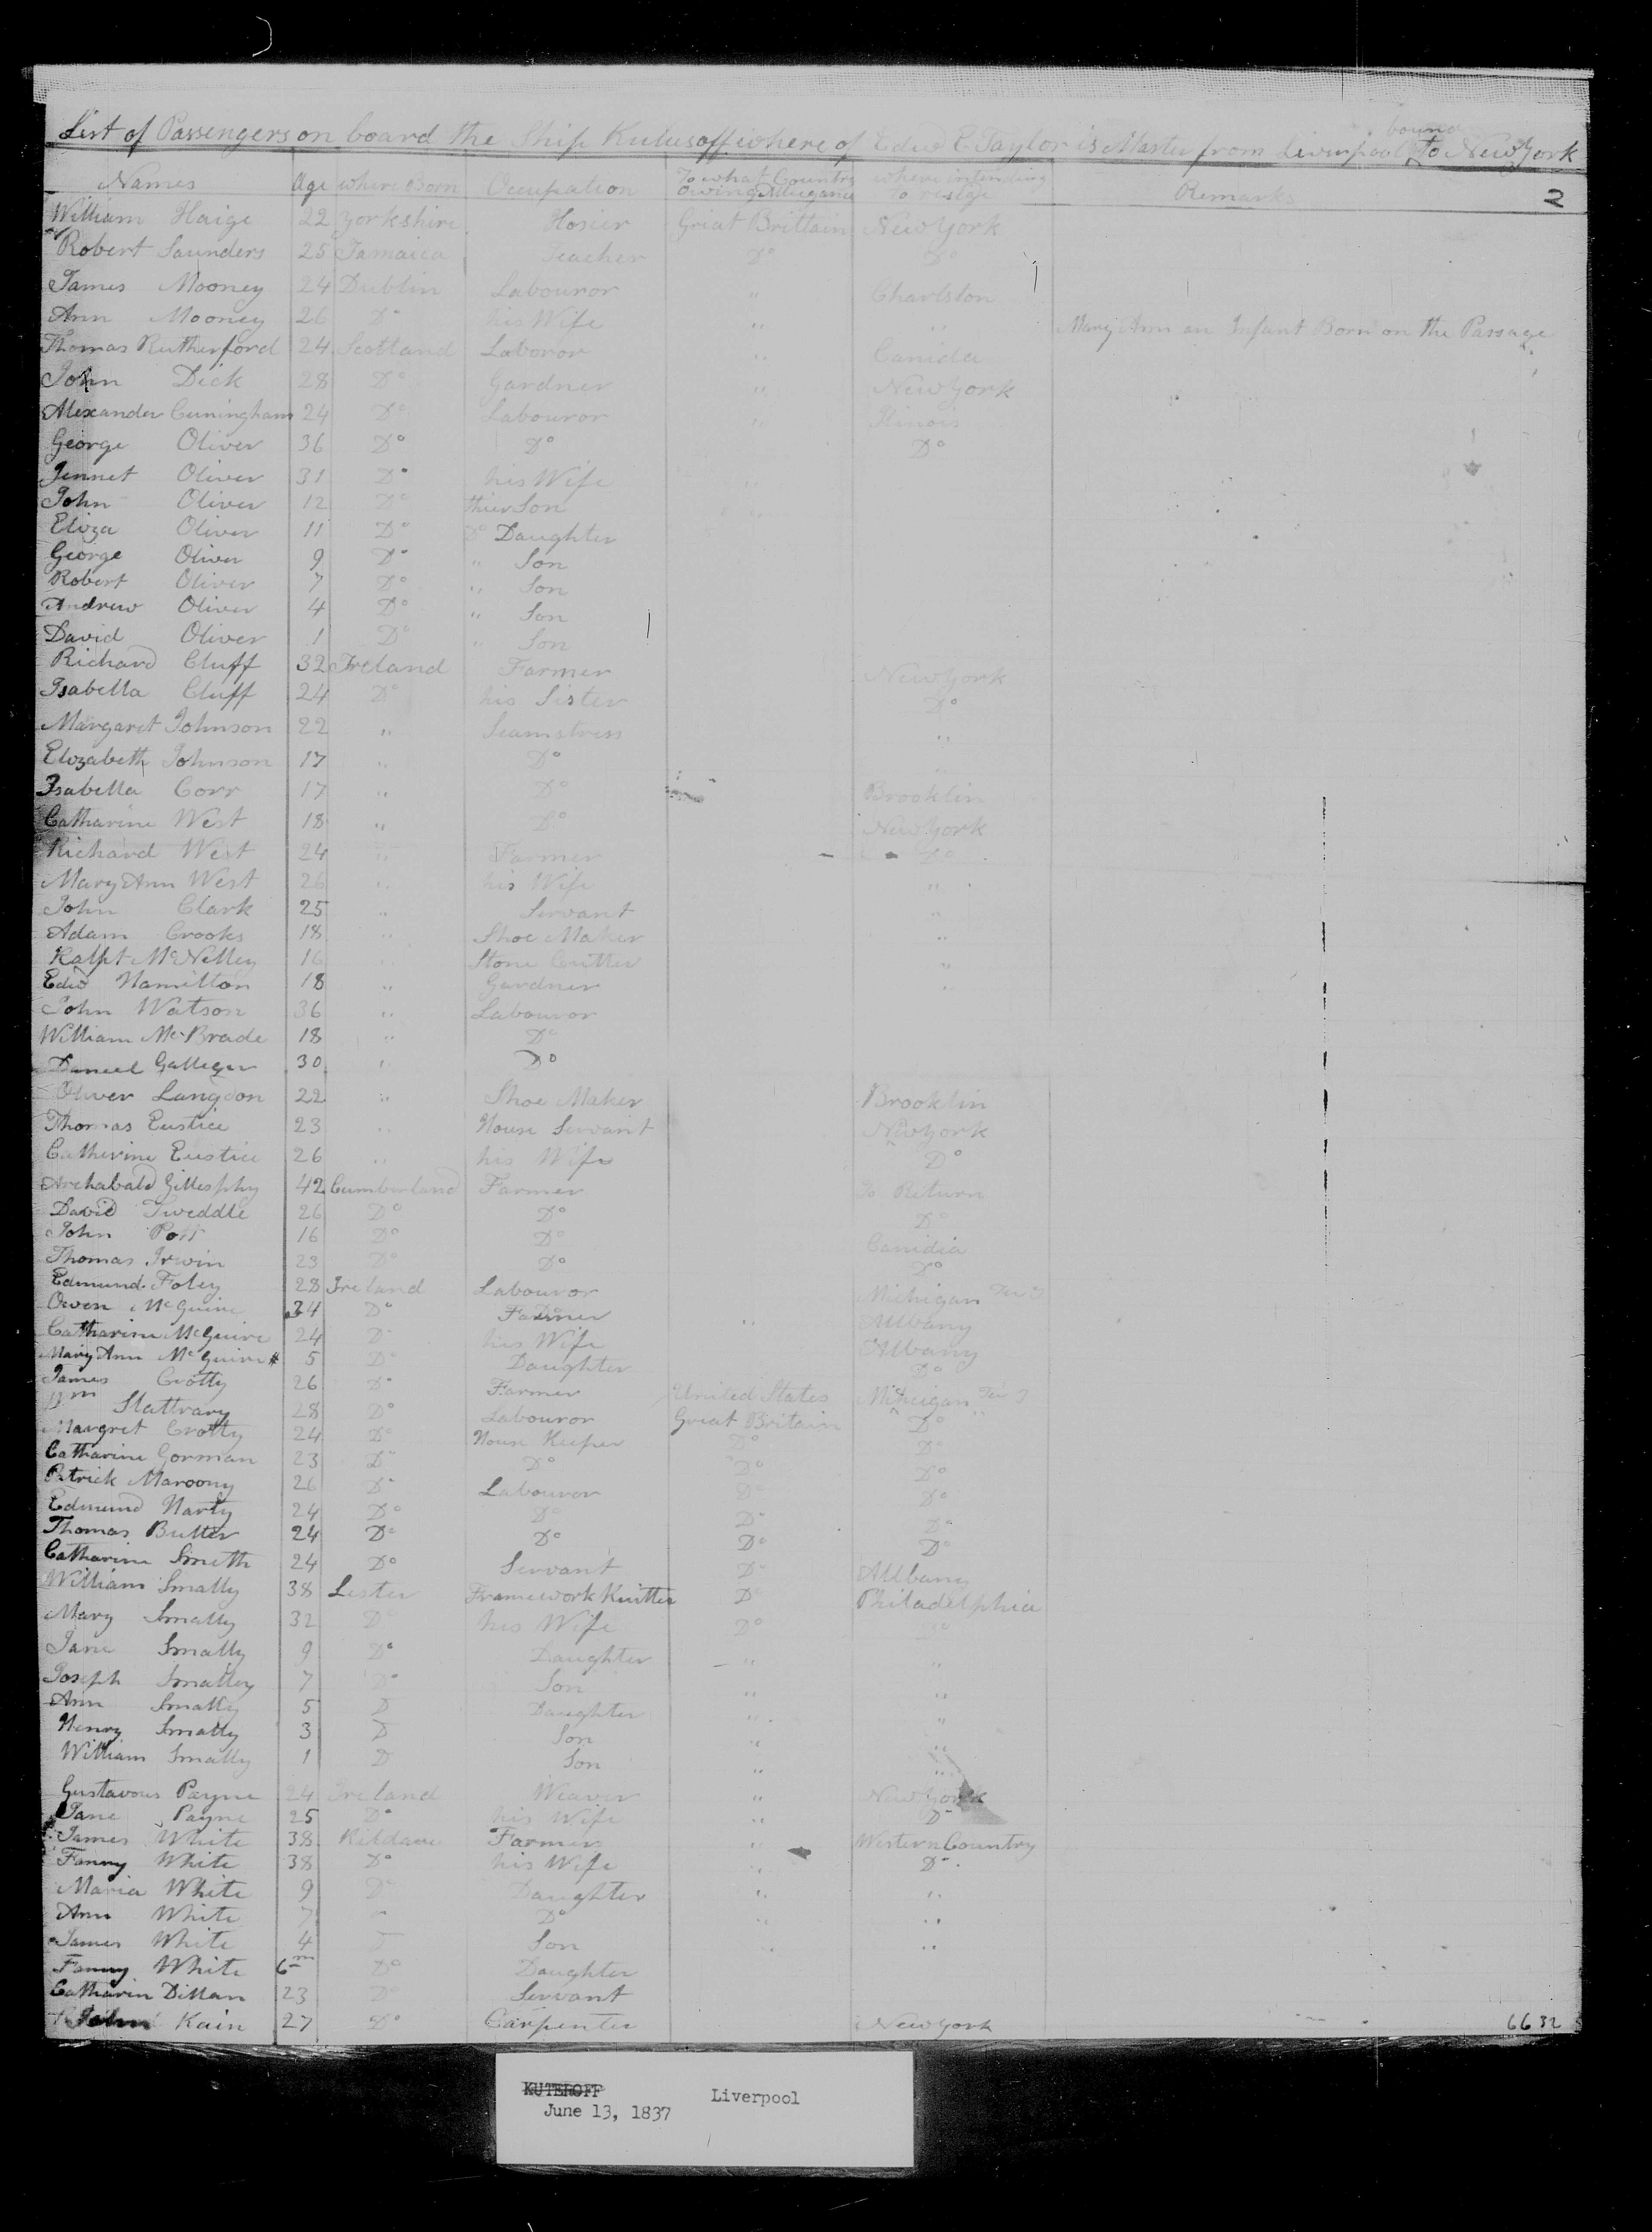 List of Passengers on board the Ship Kutusoff where of Edw E Taylor is Master from Liverpool bound To New York
Names Age where Born Occupation To what Country Owing Allegance where intending to reside Remarks 2
William Haige 22 Yorkshire Hosier Griat Brittain New York
Robert Saunders 25 Jamaica Teacher Do Do
James Mooney 24 Dublin Labouror " Charlston
Ann Mooney 26 Do his Wife " " Mary Ann an Infant Born on the Passage
Thomas Rutherford 24 Scotland Laboror " Canida
John Dick 28 Do Gardner " New York
Alexander Cuningham 24 Do Labouror " Ilinois
George Oliver 36 Do Do Do
Jennet Oliver 31 Do his Wife
John Oliver 12 Do thier Son
Eliza Oliver 11 Do Do Daughter
George Oliver 9 Do " Son
Robert Oliver 7 Do " Son
Andrew Oliver 4 Do " Son
David Oliver 1 Do " Son
Richard Cluff 32 Ireland Farmer New York
Isabella Cluff 24 Do his Sister Do
Margaret Johnson 22 " Seamstress "
Elizabeth Johnson 17 " Do
Isabella Corr 17 " Do Brooklin
Catharine West 18 " Do New York
Richard West 24 " Farmer Do
Mary Ann West 26 " his Wife "
John Clark 25 " Servant "
Adam Crooks 18 " Shoe Maker "
Ralpt McNelley 16 Stone Cutter "
Edwd Hamilton 18 " Gardner "
John Watson 36 " Labouror
William McBrade 18 " Do
Daniel Galleger 30 " Do
Oliver Langdon 22 " Shoe Maker Brooklin
Thomas Eustice 23 " House Servant New York
Catherine Eustice 26 " his Wife Do
Archabald Gillesphy 42 Cumberland Farmer To Return
David Tweddle 26 Do Do Do
John Pott 16 Do Do Canidia
Thomas Irwin 23 Do Do Do
Edmund Foley 28 Ireland Labouror Michigan
Owen McGuire 34 Do Farmer " Allbany
Catharine McGuire 24 Do his Wife Allbany
Mary Ann McGuire # 5 Do Daughter Do
James Crotty 26 Do Farmer United States Mihcigan
Wm Slattrary 28 Do Labouror Great Britain Do
Margret Crotty 24 Do House Keeper Do Do
Catharine Gorman 23 Do Do Do Do
Patrick Maroony 26 Do Labouror Do Do
Edmund Harty 24 Do Do Do Do
Thomas Butler 24 Do Do Do Do
Catharine Smith 24 Do Servant Do Allbany
William Smally 38 Lester Framework Knitter Do Philadelphia
Mary Smally 32 Do his Wife Do Do
Jane Smally 9 Do Daughter " "
Joseph Smalley 7 Do Son " "
Ann Smally 5 D Daughter " "
Henry Smally 3 D Son " "
William Smally 1 D Son " "
Gustavous Payne 24 Ireland Weaver " New York
Jane Payne 25 Do his Wife " Do
James White 38 Kildare Farmer " Western Country
Fanny White 38 Do his Wife " Do
Maria White 9 Do Daughter " "
Ann White 7 " Do " "
James White 4 Son " "
Fanny White 6m Do Daughter
Catharin Dillan 23 Do Servant
John Kain 27 Do Carpenter New York
6632
KUTEROFF Liverpool
June 13, 1837